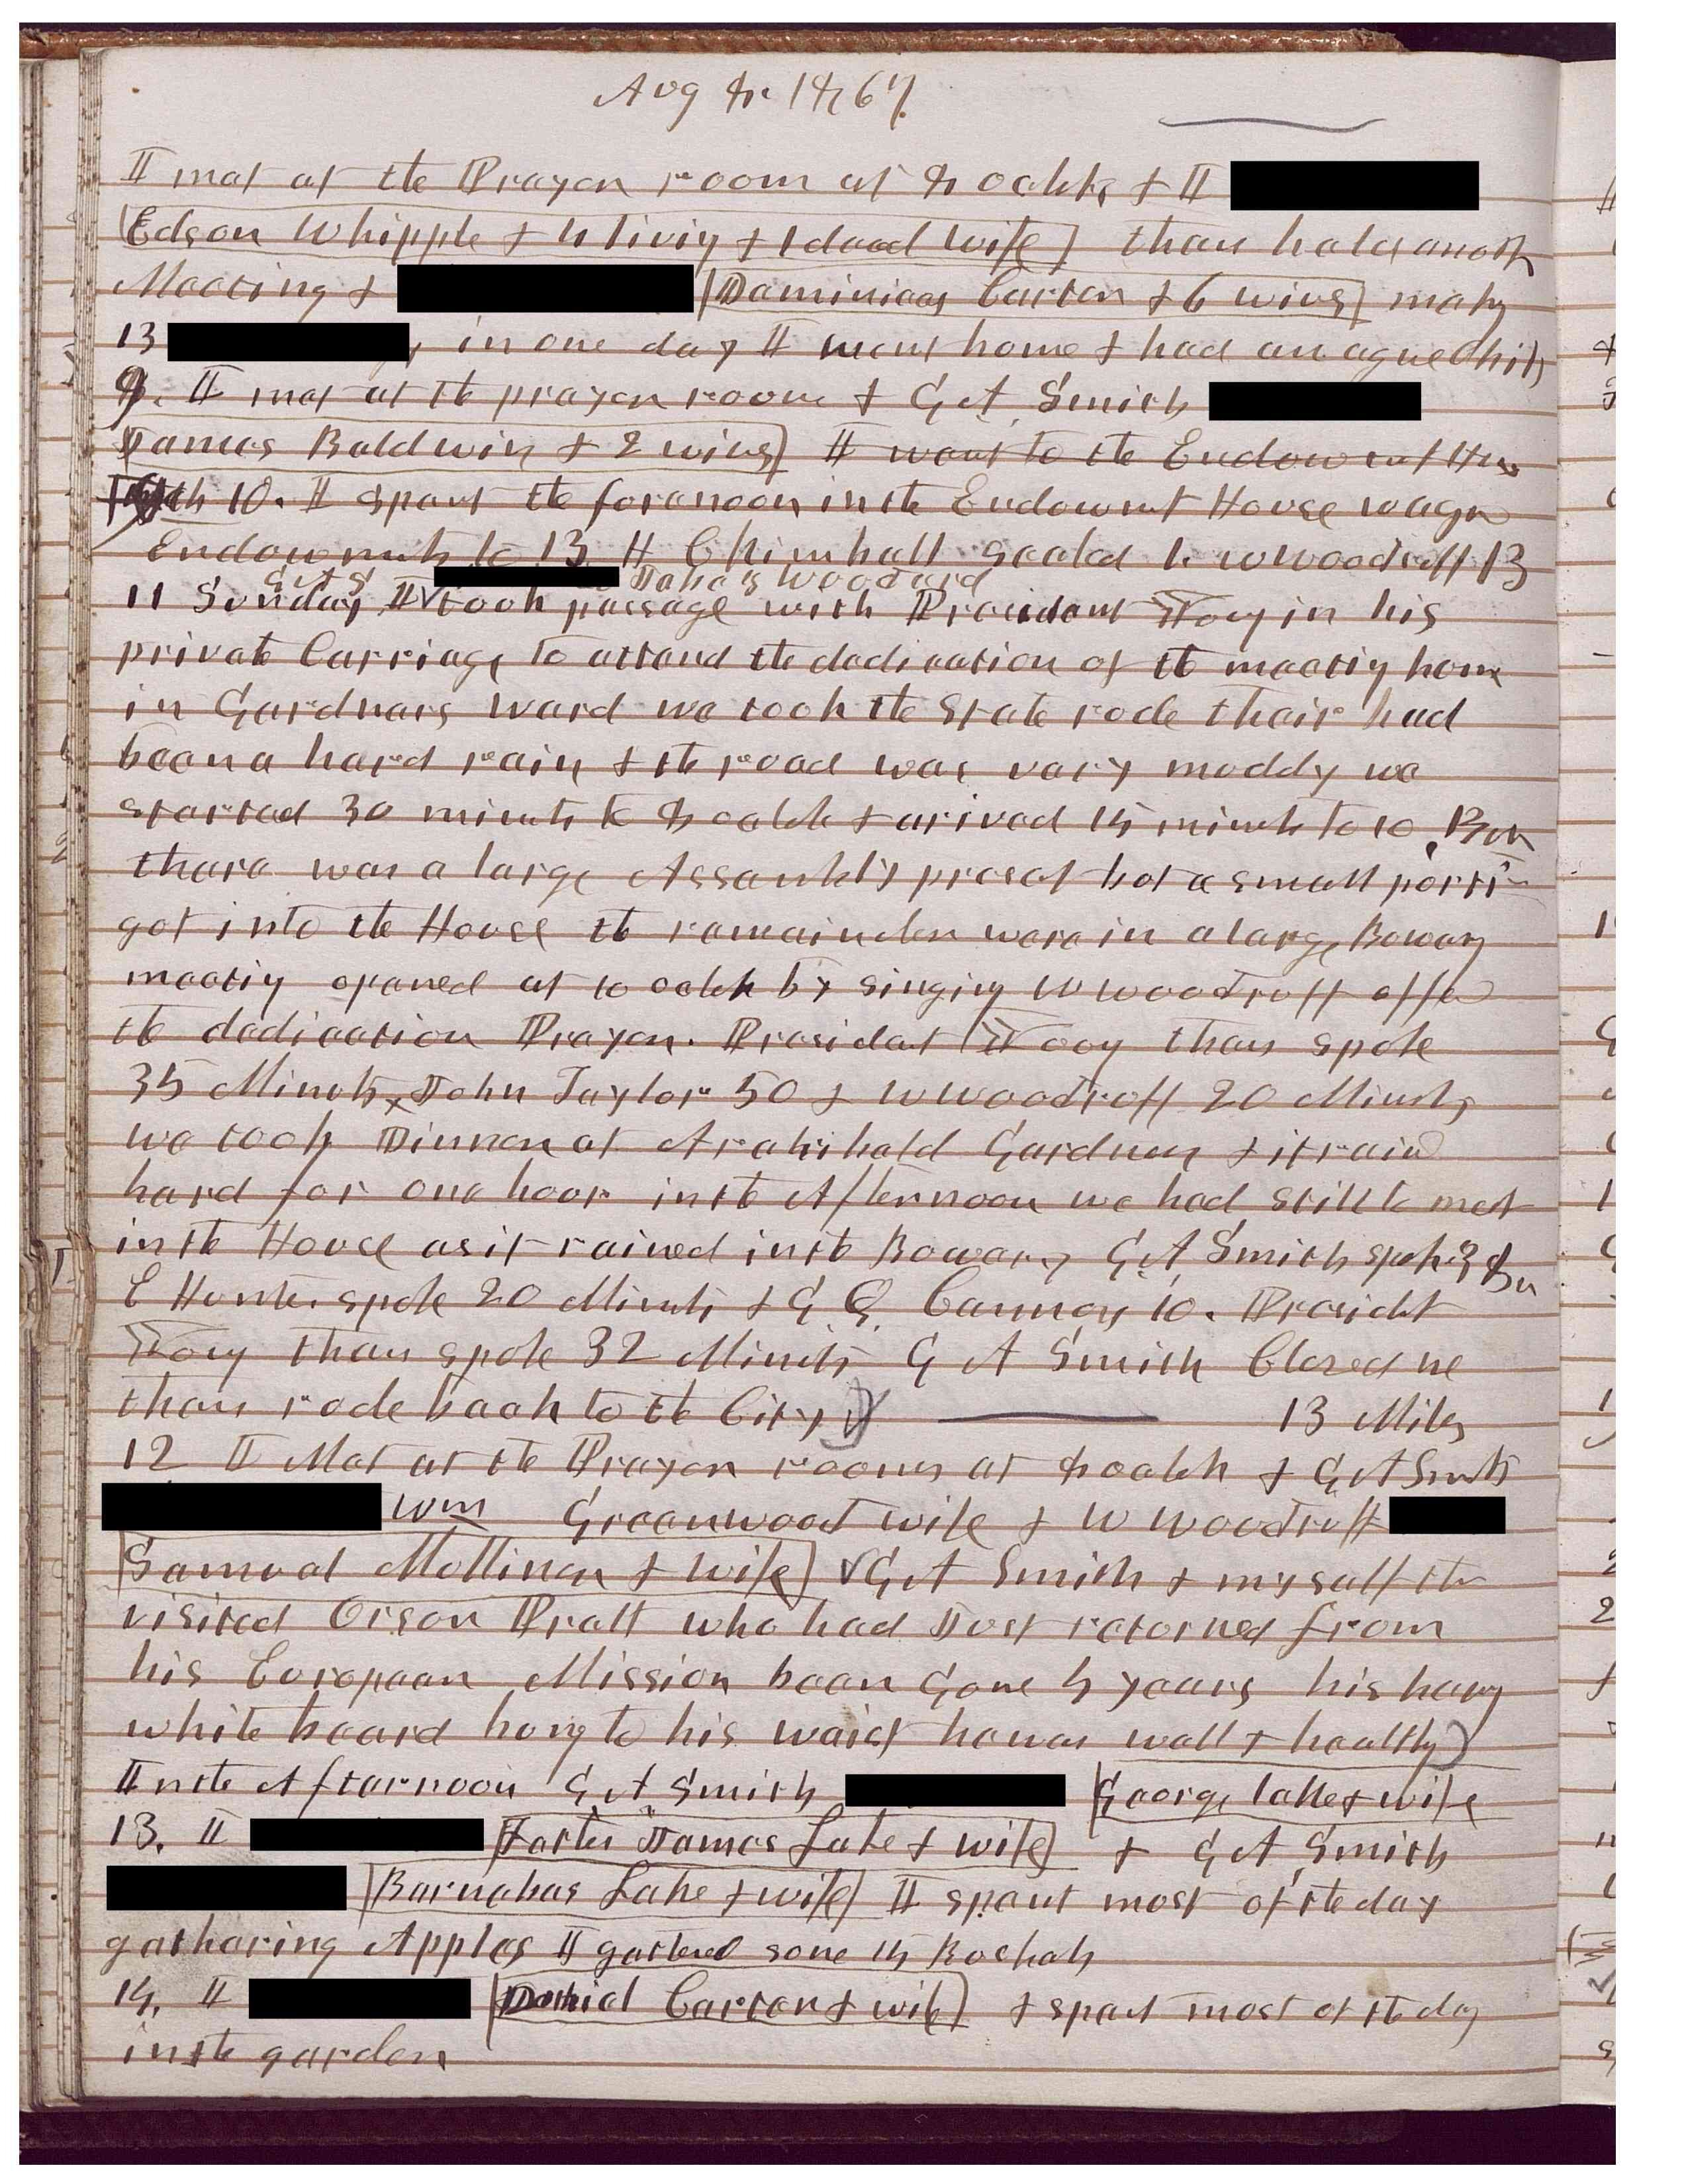 Aug 8. 1867.
I met at the Prayer room at 8 oclk & I
Edson Whipple & 4 living & 1 dead wife then held anoth
Meeting & Dominicus Carter & 6 wives makg
13 in one day I went home & had an ague Chill
9. I met at the prayer room & G A Smith
James Baldwin & 2 wives I went to the Endowmet Hus
10. I spent the forenoon in the Endowmt House we gave
Endowmnts to 13 H C Kimball sealed 1. W Woodruff 13
G A S Woodard
11 Sunday I took passage with President Young in his
private Carriage to attend the dedication of the meeting house
in Gardners ward we took the State rode thair had
been a hard rain & the road was very muddy we
started 30 minuts to 8 oclok & arived 15 minuts to 10
there was a large Assembly preset but a small porti
got into the House the remainder were in a large Bowery
meeting opened at 10 oclok by singing W Woodruff offed
the dedication Prayer. President Young then spoke
35 Minuts John Taylor 50 & W Woodruff 20 Minuts
we took Dinner at Archibald Gardner & it raind
hard for one hour in the Afternoon we had still to meet
in the House as it rained in the Bowery G A Smith spoke
E Hunter spoke 20 Minuts & G Q Cannon 10. Presidet
Young then spoke 32 Minuts G A Smith Closed we
then rode back to the City 13 Miles
12 I Met at the Prayer room at 8 oclok & G A Smith
Wm Greenwood wife & W Woodruff
Samuel Molliner & wife G A Smith & myself then
visited Orson Pratt who had Just returned from
his European Mission been Gone 3 years his heavy
white beard hung to his waist he was well & healthy
In the Afternoon G A Smith George wife
13. I James Lake & wife & G A Smith
Barnabas Lake & wife I spent most of the day
gathering Apples I gatherd some 15 Bushels
14. I Carter & wife & spent most of the day
in the garden